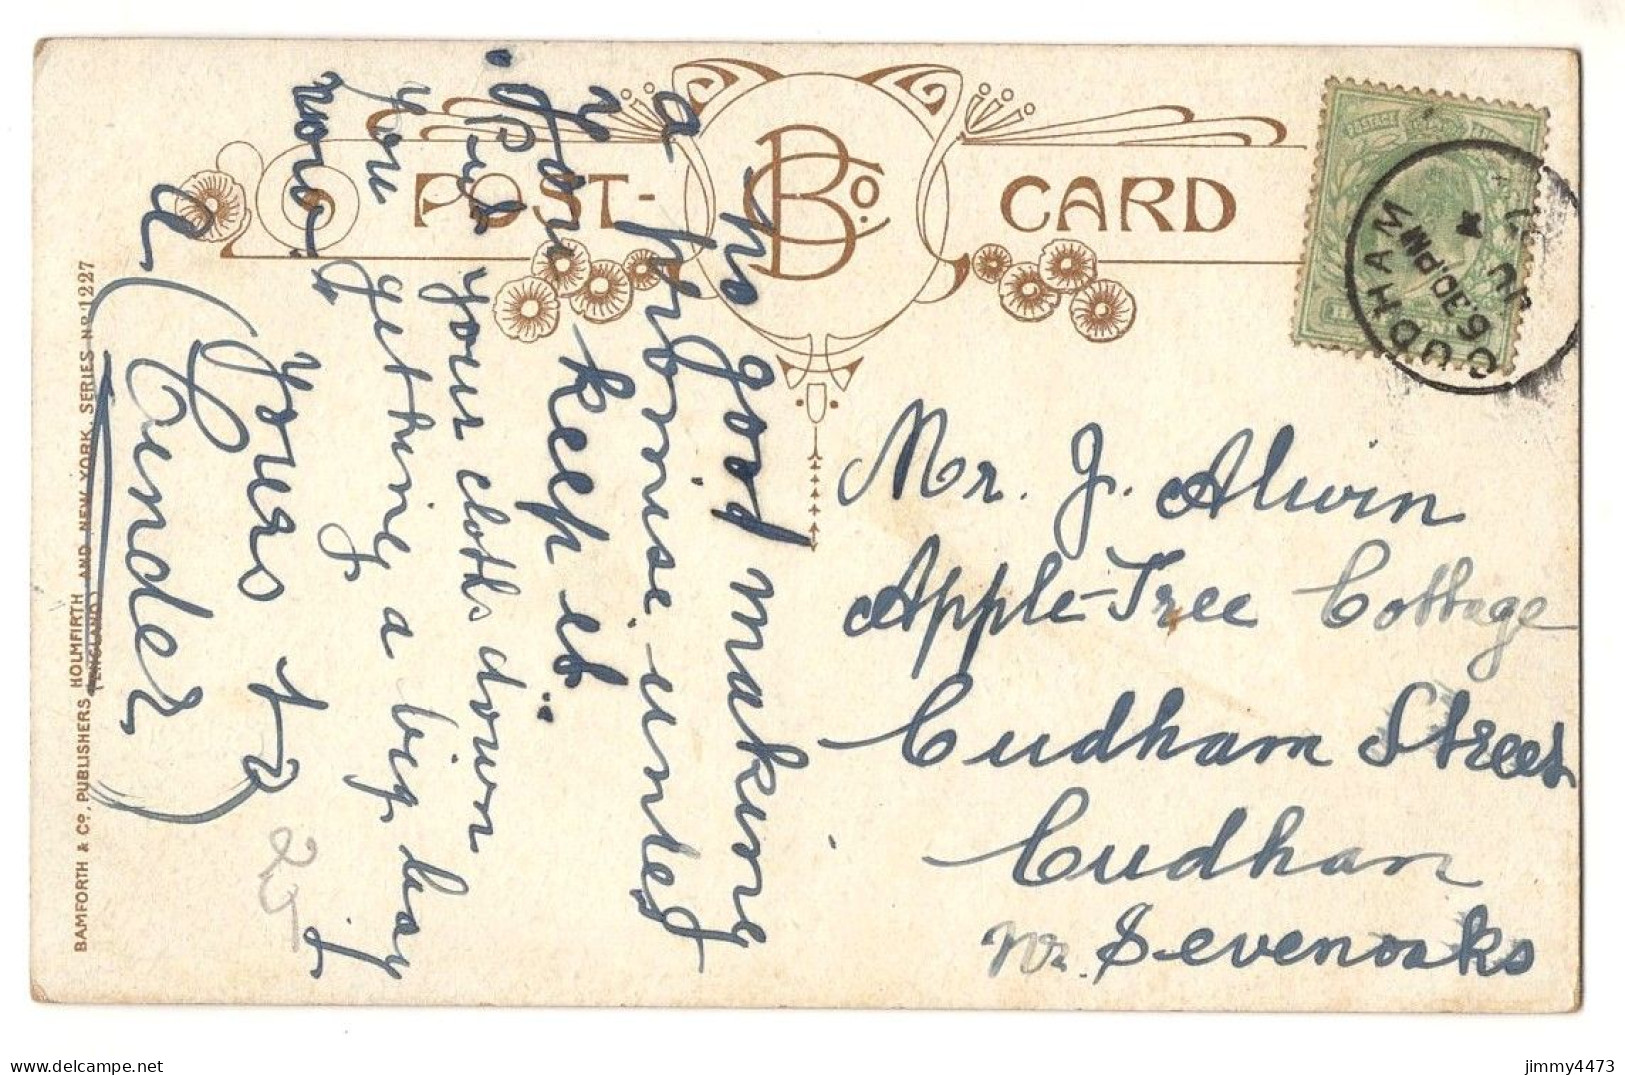 POST-CARD
BCo.
CUDHAM
6.30.PM
JU 4
11
Mr. J. Alwin
Apple-Tree Cottage
Cudham Street
Cudham
Nr. Sevenoaks
no good making
a promise unles
you keep it
Put your cloths down
you getting a big boy
now
yours
a (Cinder)
25
BAMFORTH & Co., PUBLISHERS HOLMFIRTH AND NEW YORK. SERIES No 1227
(ENGLAND)
jimmy4473